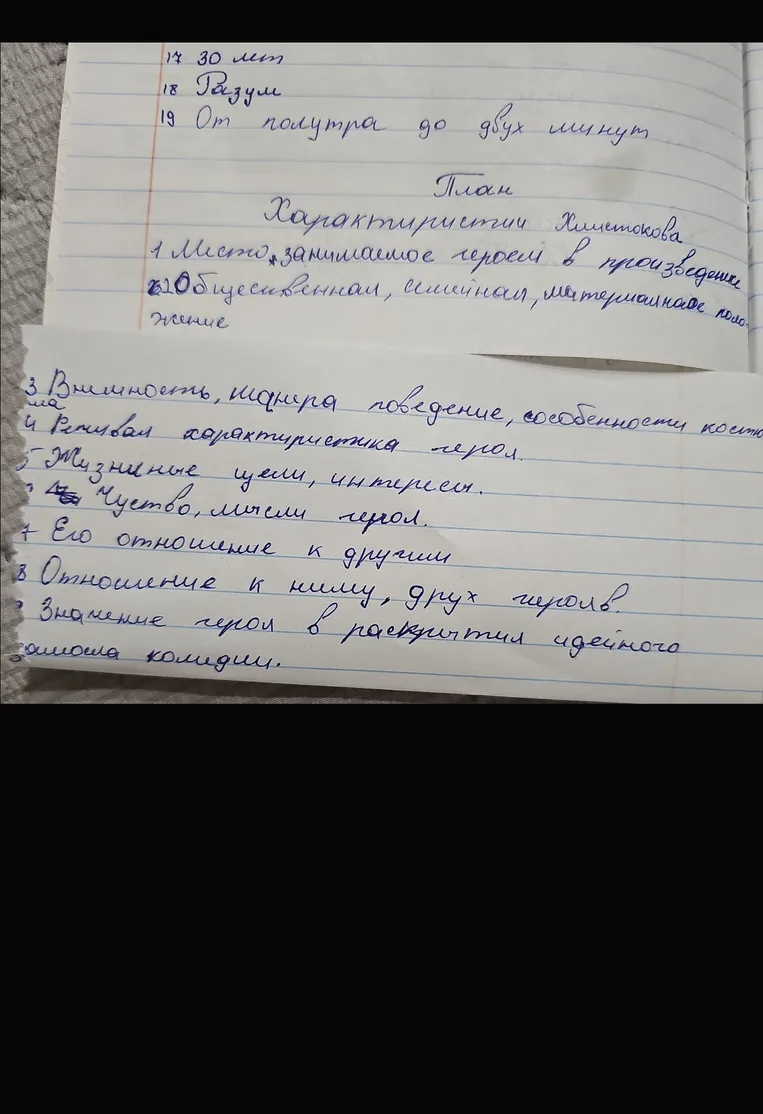 17 30 лет
18 Разум
19 От полутра до двух минут
План
Характиристии Хлистокова
1 Место, занимаемое героем в произведение
2 Общественная, семейная, материалное поло-
жение
3 Внешность, манера поведение, сособенности костю
ма
4 Речивая характиристика героя.
5 Жизненые цели, интересы.
Чуство, мысли героя.
7 Его отношение к другим
8 Отношение к нему, друх геролв.
Значение героя в раскрытия идейного
замысла комедии.